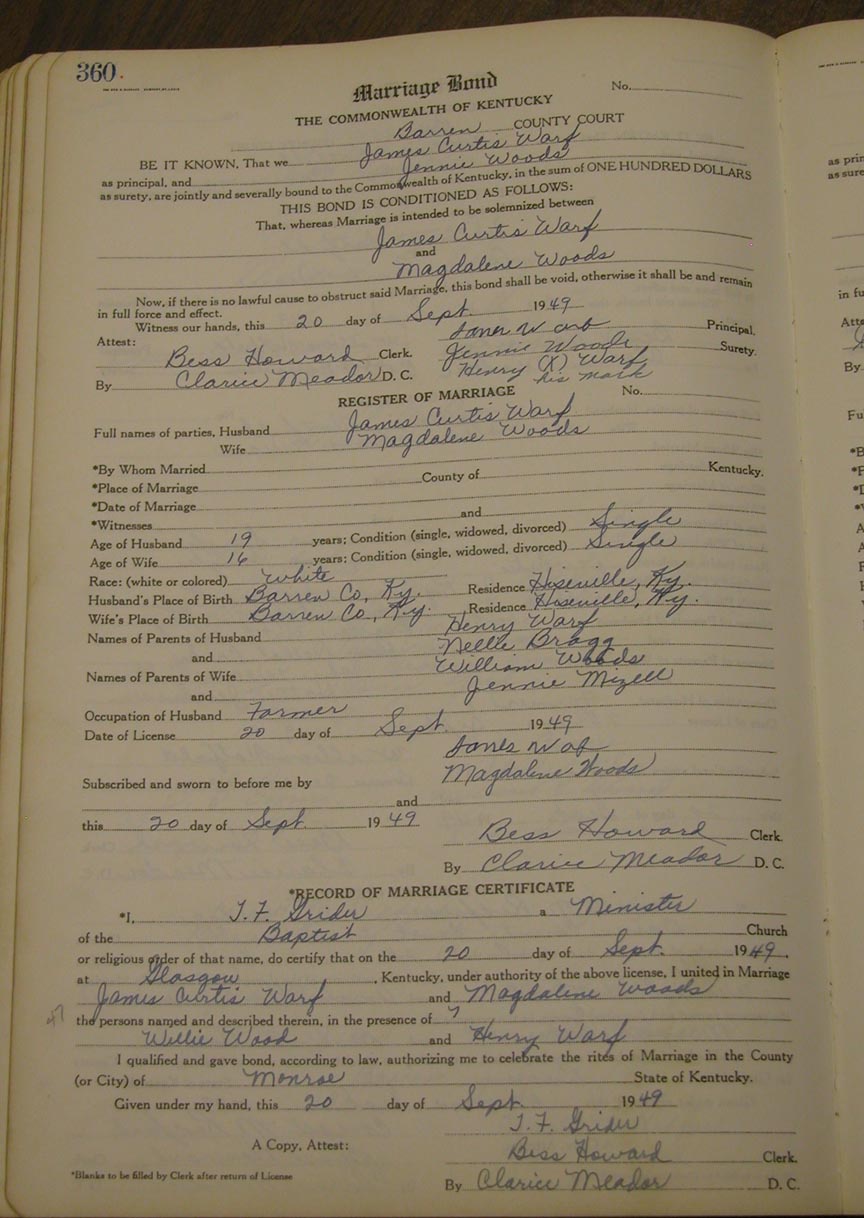 360.
Marriage Bond
No.
THE COMMONWEALTH OF KENTUCKY
Barren COUNTY COURT
BE IT KNOWN, That we James Curtis Warf
as principal, and Jennie Woods
as surety, are jointly and severally bound to the Commonwealth of Kentucky, in the sum of ONE HUNDRED DOLLARS
THIS BOND IS CONDITIONED AS FOLLOWS:
That, whereas Marriage is intended to be solemnized between
James Curtis Warf
and
Magdalene Woods
Now, if there is no lawful cause to obstruct said Marriage, this bond shall be void, otherwise it shall be and remain
in full force and effect.
Witness our hands, this 20 day of Sept. 1949
Attest: Principal.
Bess Howard Clerk. Jennie Woods Surety.
By Clarice Meador D. C. Henry (X) Warf
his mark
REGISTER OF MARRIAGE No.
Full names of parties, Husband James Curtis Warf
Wife Magdalene Woods
*By Whom Married
*Place of Marriage County of Kentucky.
*Date of Marriage
*Witnesses and
Age of Husband 19 years; Condition (single, widowed, divorced) Single
Age of Wife 16 years; Condition (single, widowed, divorced) Single
Race: (white or colored) White
Husband's Place of Birth Barren Co, Ky. Residence Hiseville, Ky.
Wife's Place of Birth Barren Co, Ky. Residence Hiseville, Ky.
Names of Parents of Husband Henry Warf
and Nellie Bragg
Names of Parents of Wife William Woods
and Jennie Mizell
Occupation of Husband Farmer
Date of License 20 day of Sept. 1949
Subscribed and sworn to before me by Magdalene Woods
and
this 20 day of Sept. 1949
Bess Howard Clerk.
By Clarice Meador D. C.
*RECORD OF MARRIAGE CERTIFICATE
*I, T. F. Grider a Minister
of the Baptist Church
or religious order of that name, do certify that on the 20 day of Sept. 1949.
at Glasgow, Kentucky, under authority of the above license, I united in Marriage
James Curtis Warf and Magdalene Woods
the persons named and described therein, in the presence of
Willie Wood and Henry Warf
I qualified and gave bond, according to law, authorizing me to celebrate the rites of Marriage in the County
(or City) of Monroe State of Kentucky.
Given under my hand, this 20 day of Sept. 1949
T. F. Grider
A Copy, Attest: Bess Howard Clerk.
*Blanks to be filled by Clerk after return of License
By Clarice Meador D. C.